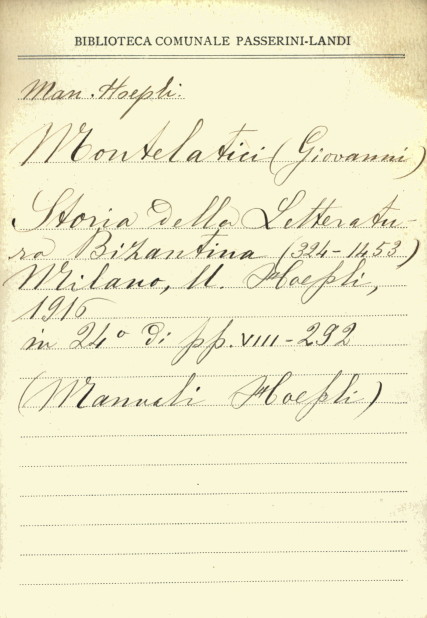 BIBLIOTECA COMUNALE PASSERINI-LANDI
Man. Hoepli.
Montelatici (Giovanni)
Storia della Letteratu-
ra Bizantina (324-1453)
Milano, U. Hoepli,
1916
in 24° di pp. VIII-292
(Manuali Hoepli)